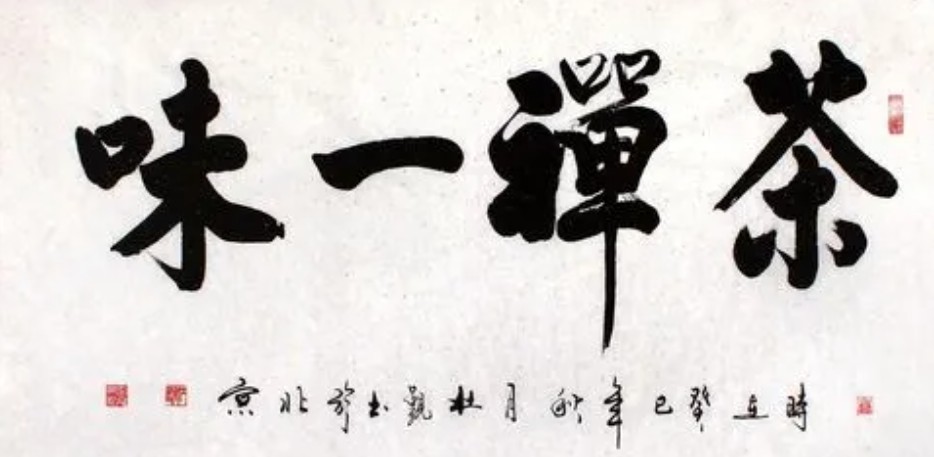 茶禪一味
時在癸巳年秋月杜觀書於北京